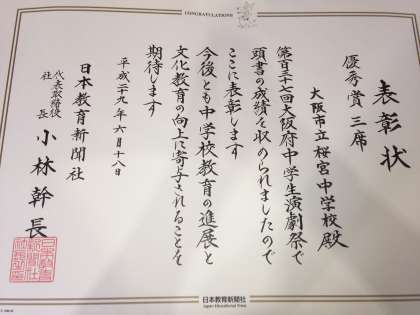 CONGRATULATIONS
表彰状
優秀賞 三席
大阪市立桜宮中学校殿
第百三十七回大阪府中学生演劇祭で
頭書の成績を収められましたので
ここに表彰します
今後とも中学校教育の進展と
文化教育の向上に寄与されることを
期待します
平成二十九年六月十八日
日本教育新聞社
代表取締役
社長 小林幹長
日本教育新聞社
Japan Educational Press